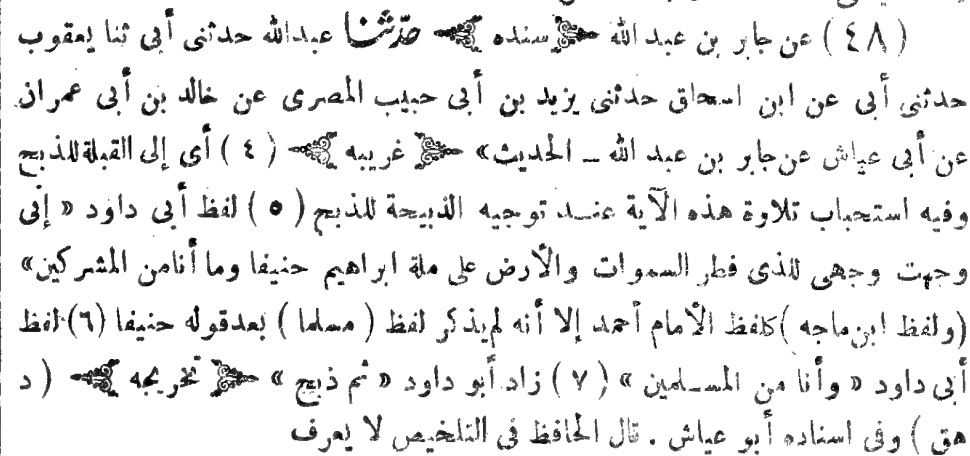 (٤٨) عن جابر بن عبد الله سنده حدّثنا عبدالله حدثنى أبى ثنا يعقوب
حدثنى أبى عن ابن اسحاق حدثنى يزيد بن أبى حبيب المصرى عن خالد بن أبى عمران
عن أبى عياش عن جابر بن عبد الله ــ الحديث» غريبه (٤) أى إلى القبلة للذبح
وفيه استحباب تلاوة هذه الآية عنــد توجيه الذبيحة للذبح (٥) لفظ أبى داود « إنى
وجهت وجهى للذى فطر السموات والأرض على ملة ابراهيم حنيفا وما أنا من المشركين»
(ولفظ ابن ماجه) كلفظ الأمام أحمد إلا أنه لم يذكر لفظ (مسلما) بعد قوله حنيفا (٦) لفظ
أبى داود « وأنا من المســلمين » (٧) زاد أبو داود « ثم ذبح » تخريجه (د
هق) وفى اسناده أبو عياش . قال الحافظ فى التلخيص لا يعرف